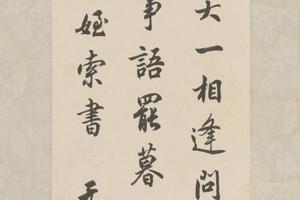 大一相逢問
事語罷暮
姪索書